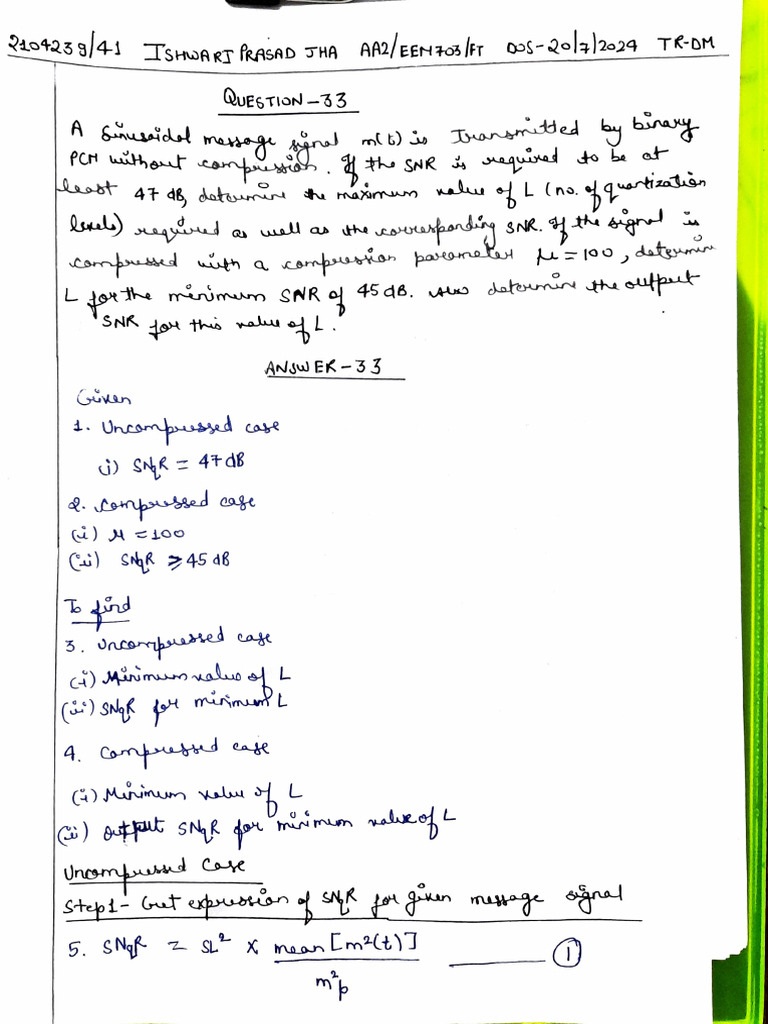 2104239/41 ISHWARI PRASAD JHA AA2/EEM703/FT DOS-20/7/2024 TR-DM
QUESTION-33
A Sinusoidal message signal m(t) is Transmitted by binary
PCM without compression. If the SNR is required to be at
least 47 dB, determine the maximum value of L (no. of quantization
levels) required as well as the corresponding SNR. If the signal is
compressed with a compression parameter μ=100, determine
L for the minimum SNR of 45 dB. Also determine the output
SNR for this value of L.
ANSWER-33
Given
1. Uncompressed case
(i) SNqR = 47 dB
2. Compressed case
(i) μ = 100
(ii) SNqR ≥ 45 dB
To find
3. Uncompressed case
(i) Minimum value of L
(ii) SNqR for minimum L
4. Compressed case
(i) Minimum value of L
(ii) Output SNqR for minimum value of L
Uncompressed Case
Step1- Get expression of SNqR for given message signal
5. SNqR = SL² × mean [m²(t)] ______ ①
m²p